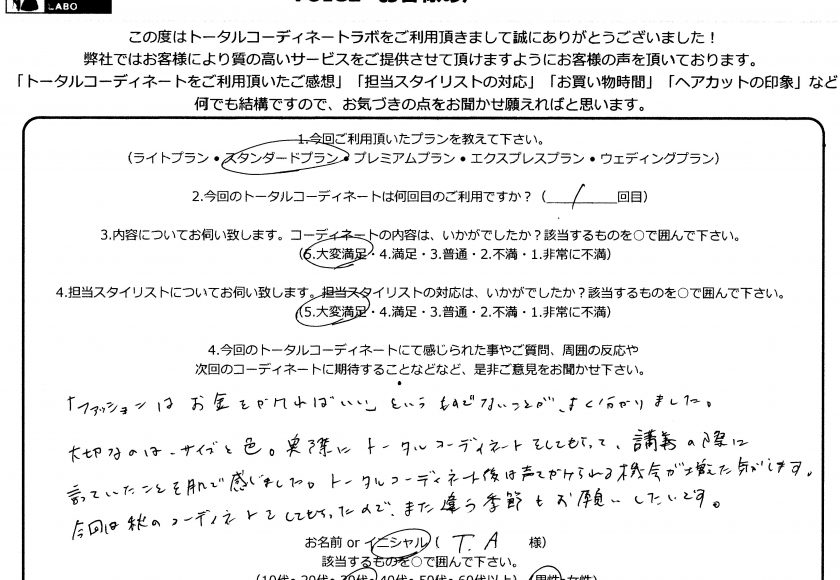 LABO
この度はトータルコーディネートラボをご利用頂きまして誠にありがとうございました！
弊社ではお客様により質の高いサービスをご提供させて頂けますようにお客様の声を頂いております。
「トータルコーディネートをご利用頂いたご感想」「担当スタイリストの対応」「お買い物時間」「ヘアカットの印象」など
何でも結構ですので、お気づきの点をお聞かせ願えればと思います。
1.今回ご利用頂いたプランを教えて下さい。
（ライトプラン・スタンダードプラン・プレミアムプラン・エクスプレスプラン・ウェディングプラン）
2.今回のトータルコーディネートは何回目のご利用ですか？（ 1 回目）
3.内容についてお伺い致します。コーディネートの内容は、いかがでしたか？該当するものを○で囲んで下さい。
（5.大変満足・4.満足・3.普通・2.不満・1.非常に不満）
4.担当スタイリストについてお伺い致します。担当スタイリストの対応は、いかがでしたか？該当するものを○で囲んで下さい。
（5.大変満足・4.満足・3.普通・2.不満・1.非常に不満）
4.今回のトータルコーディネートにて感じられた事やご質問、周囲の反応や
次回のコーディネートに期待することなどなど、是非ご意見をお聞かせ下さい。
「ファッションはお金をかければいい」というものでないことが、よく分かりました。
大切なのは、サイズと色。実際にトータルコーディネートをしてもらって、講義の際に
言っていたことを肌で感じました。トータルコーディネート後は声をかけられる機会が増えた気がします。
今回は秋のコーディネートをしてもらったので、また違う季節もお願いしたいです。
お名前 or イニシャル（ T.A 様）
該当するものを○で囲んで下さい。
（10代・20代・30代・40代・50代・60代以上）（男性・女性）